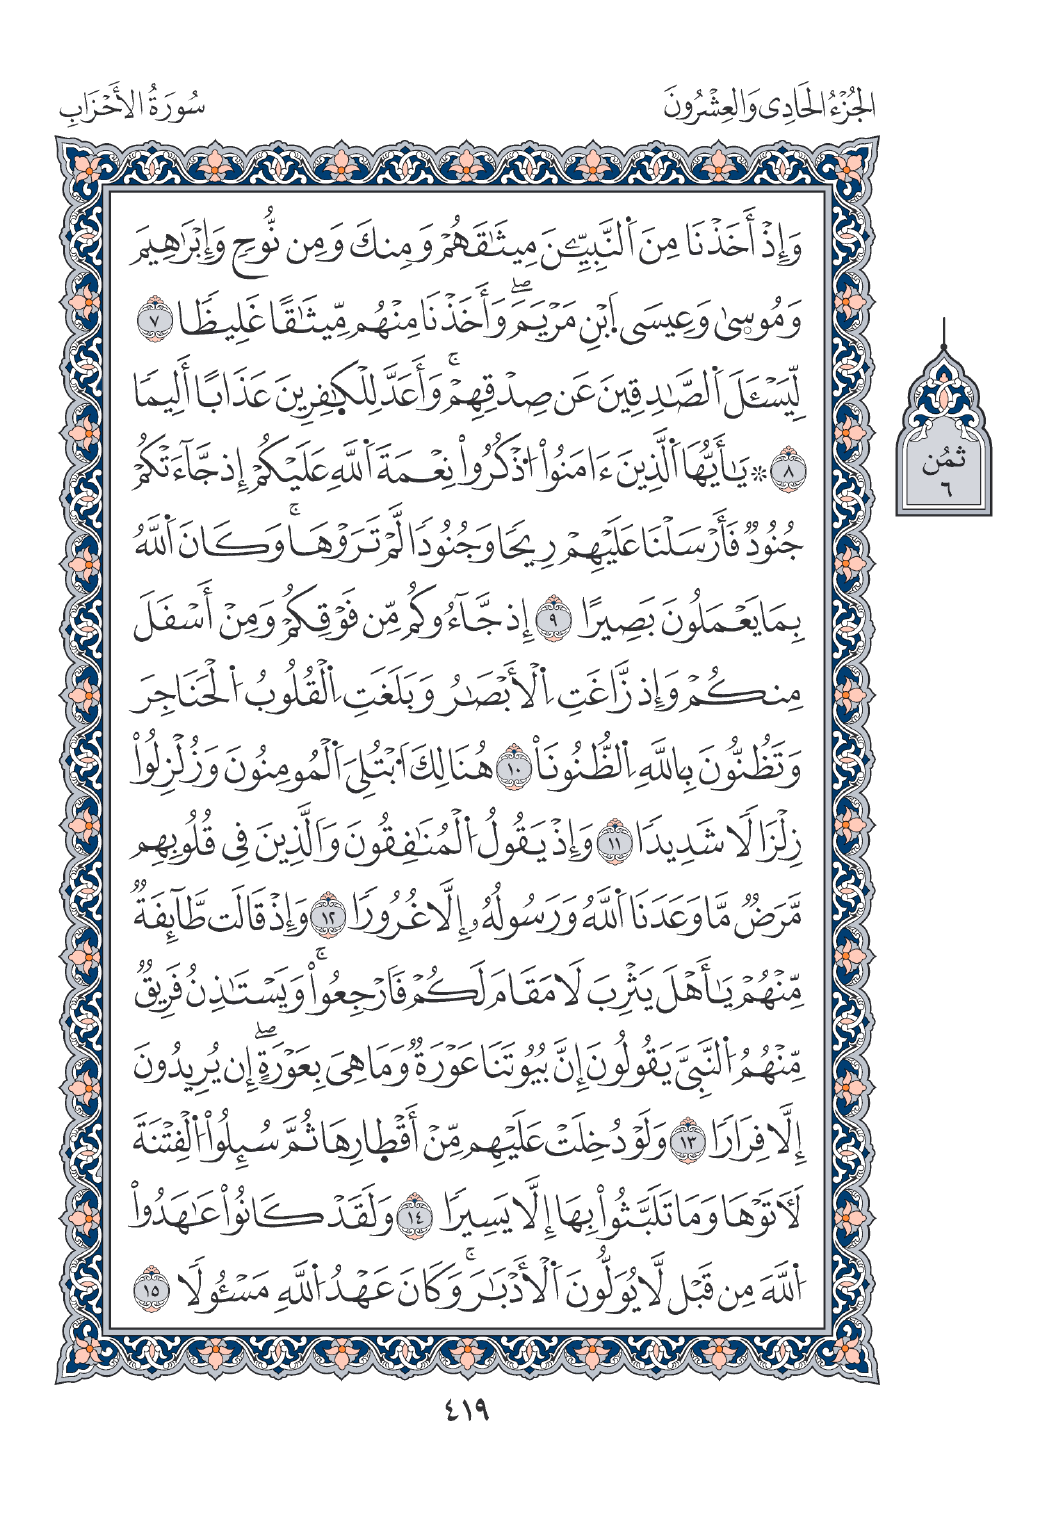 الجُزْءُ الحَادِى وَالعِشْرُونَ
سُورَةُ الأَحْزَابِ
وَإِذْ أَخَذْنَا مِنَ اَ۬لنَّبِيِّـۧنَ مِيثَٰقَهُمْ وَمِنكَ وَمِن نُّوحٖ وَإِبْرَٰهِيمَ
وَمُوس۪يٰ وَعِيسَى اَ۪بْنِ مَرْيَمَۖ وَأَخَذْنَا مِنْهُم مِّيثَٰقًا غَلِيظٗا ٧
لِّيَسْـَٔلَ اَ۬لصَّٰدِقِينَ عَن صِدْقِهِمْۚ وَأَعَدَّ لِلْكٰ۪فِرِينَ عَذَابًا أَلِيمٗا
٨ ۞ يَٰٓأَيُّهَا اَ۬لذِينَ ءَامَنُواْ اُ۟ذْكُرُواْ نِعْمَةَ اَ۬للَّهِ عَلَيْكُمْ إِذ جَّآءَتْكُمْ
جُنُودٞ فَأَرْسَلْنَا عَلَيْهِمْ رِيحٗا وَجُنُودٗا لَّمْ تَرَوْهَاۚ وَكَانَ اَ۬للَّهُ
بِمَا يَعْمَلُونَ بَصِيرًا ٩ إِذ جَّآءُوكُم مِّن فَوْقِكُمْ وَمِنْ أَسْفَلَ
مِنكُمْ وَإِذ زَّاغَتِ اِ۬لْأَبْصَٰرُ وَبَلَغَتِ اِ۬لْقُلُوبُ اُ۬لْحَنَاجِرَ
وَتَظُنُّونَ بِاللَّهِ اِ۬لظُّنُونَاْ ١٠ هُنَالِكَ اَ۟بْتُلِىَ اَ۬لْمُومِنُونَ وَزُلْزِلُواْ
زِلْزَالٗا شَدِيدٗا ١١ وَإِذْ يَقُولُ اُ۬لْمُنَٰفِقُونَ وَاَلَّذِينَ فِى قُلُوبِهِم
مَّرَضٞ مَّا وَعَدَنَا اَ۬للَّهُ وَرَسُولُهُۥٓ إِلَّا غُرُورٗا ١٢ وَإِذْ قَالَت طَّآئِفَةٞ
مِّنْهُمْ يَٰٓأَهْلَ يَثْرِبَ لَا مَقَامَ لَكُمْ فَارْجِعُواْۚ وَيَسْتَـٰذِنُ فَرِيقٞ
مِّنْهُمُ اُ۬لنَّبِىَّ يَقُولُونَ إِنَّ بُيُوتَنَا عَوْرَةٞ وَمَا هِىَ بِعَوْرَةٍۖ إِن يُرِيدُونَ
إِلَّا فِرَارٗا ١٣ وَلَوْ دُخِلَتْ عَلَيْهِم مِّنْ أَقْط۪ارِهَا ثُمَّ سُئِلُواْ اُ۬لْفِتْنَةَ
لَأٓتَوْهَا وَمَا تَلَبَّثُواْ بِهَا إِلَّا يَسِيرٗا ١٤ وَلَقَدْ كَانُواْ عَٰهَدُواْ
اُ۬للَّهَ مِن قَبْل لَّا يُوَلُّونَ اَ۬لْأَدْبَٰرَۚ وَكَانَ عَهْدُ اُ۬للَّهِ مَسْـُٔولٗا ١٥
ثمُن
٦
٤١٩